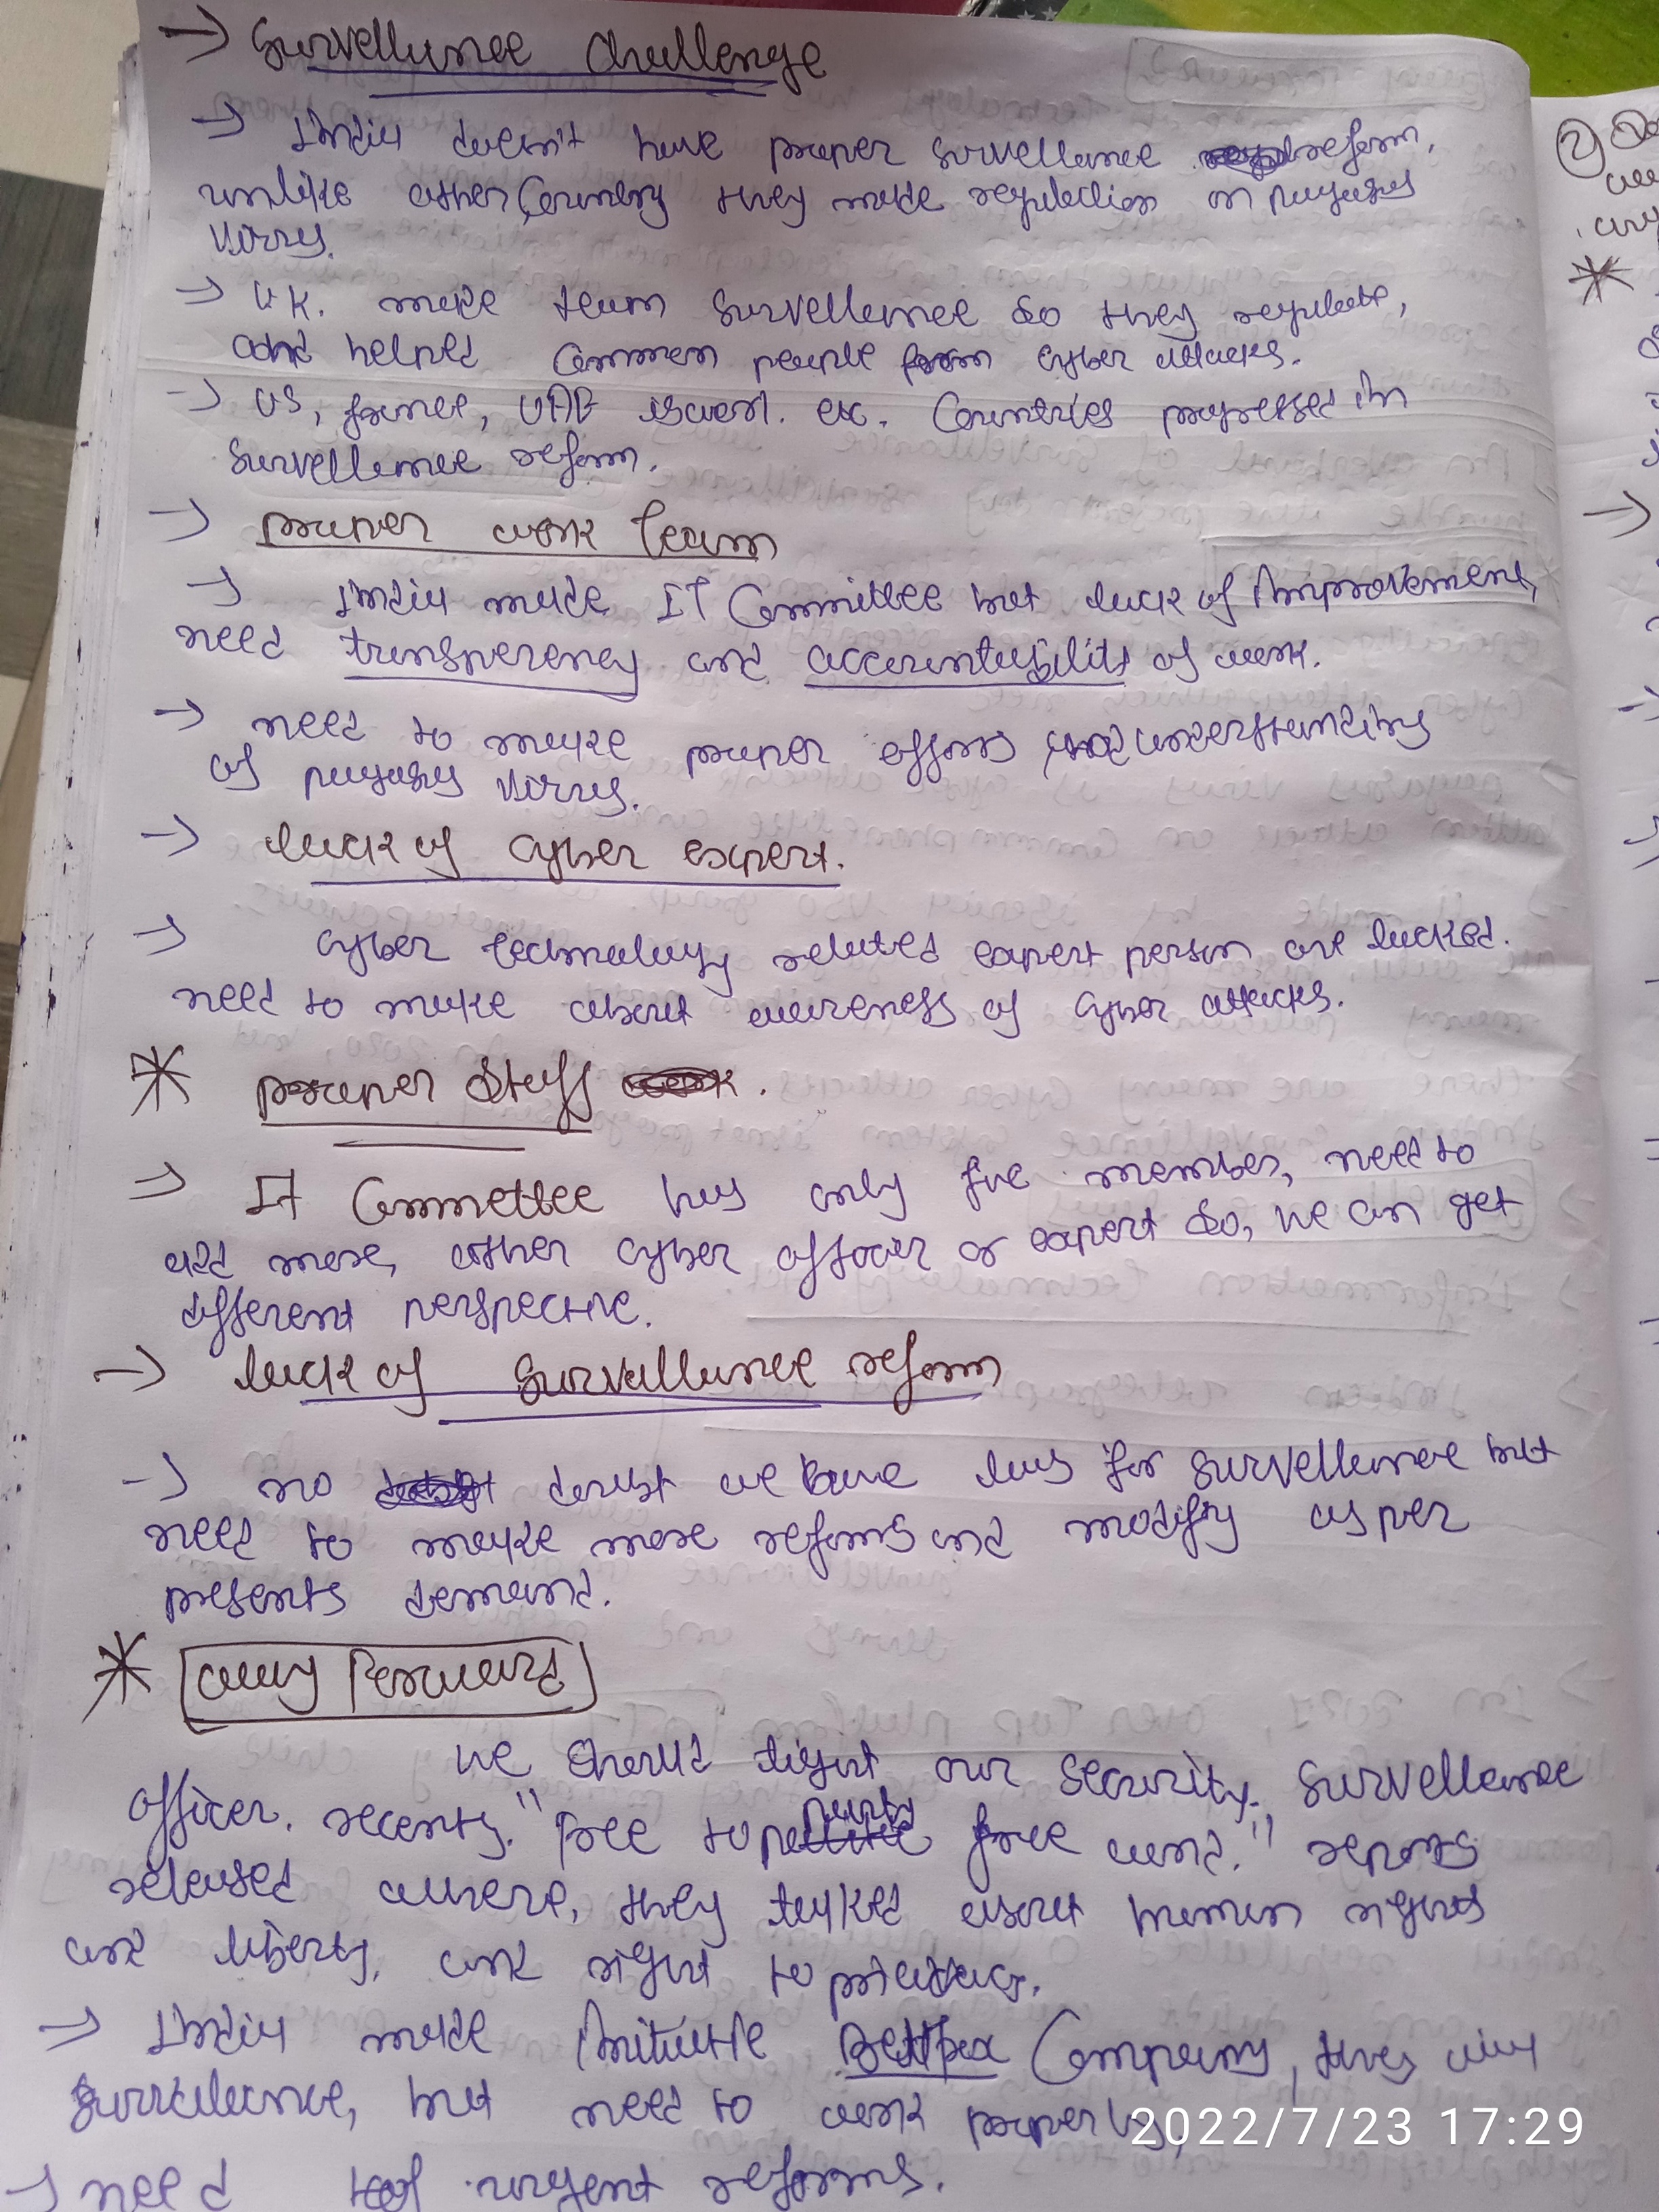 → Survellance challenge
→ India doesn't have proper survellance reform,
unlike other country they made regulation on pugasus
virus.
→ U.K. make team survellance so they regulate,
and helped common people from cyber attacks.
→ US, france, UAE isarel. etc. Countries progressed in
survellance reform.
→ proper work team
→ India made IT Committee but lack of improvement,
need transperency and accountability of work.
→ need to make proper efforts and understanding
of pugasus virus.
→ lack of cyber expert.
→ cyber technology related expert person are lacked.
need to make about awareness of cyber attacks.
* proper staff
→ IT Committee has only five member, need to
add more, other cyber officer or expert so, we can get
different perspective.
→ lack of survellance reform
→ no doubt we have laws for survellance but
need to make more reforms and modify as per
presents demand.
* way forward
We should tight our security, survellance
officer. recently. " free to party free world." reports
released where, they talked about human rights
and liberty, and right to privacy.
→ India made initiative Company, they will
survellance, but need to work properly,
→ need of urgent reforms.
2022/7/23 17:29
2
*
→